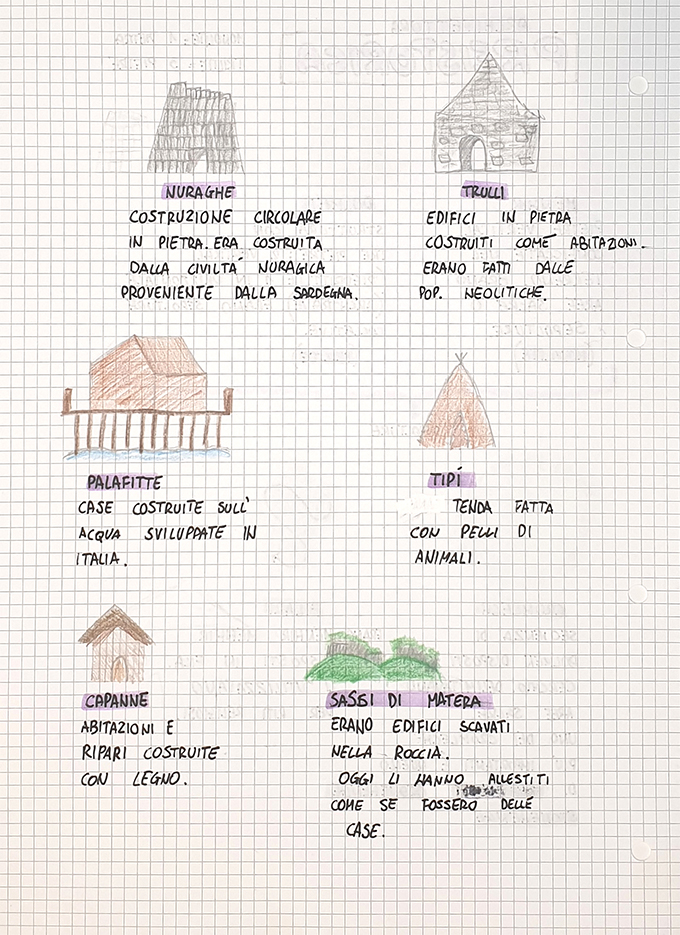 NURAGHE
COSTRUZIONE CIRCOLARE
IN PIETRA. ERA COSTRUITA
DALLA CIVILTÀ NURAGICA
PROVENIENTE DALLA SARDEGNA.
TRULLI
EDIFICI IN PIETRA
COSTRUITI COMÈ ABITAZIONI.
ERANO FATTI DALLE
POP. NEOLITICHE.
PALAFITTE
CASE COSTRUITE SULL'
ACQUA SVILUPPATE IN
ITALIA.
TIPÍ
TENDA FATTA
CON PELLI DI
ANIMALI.
CAPANNE
ABITAZIONI E
RIPARI COSTRUITE
CON LEGNO.
SASSI DI MATERA
ERANO EDIFICI SCAVATI
NELLA ROCCIA.
OGGI LI HANNO ALLESTITI
COME SE FOSSERO DELLE
CASE.